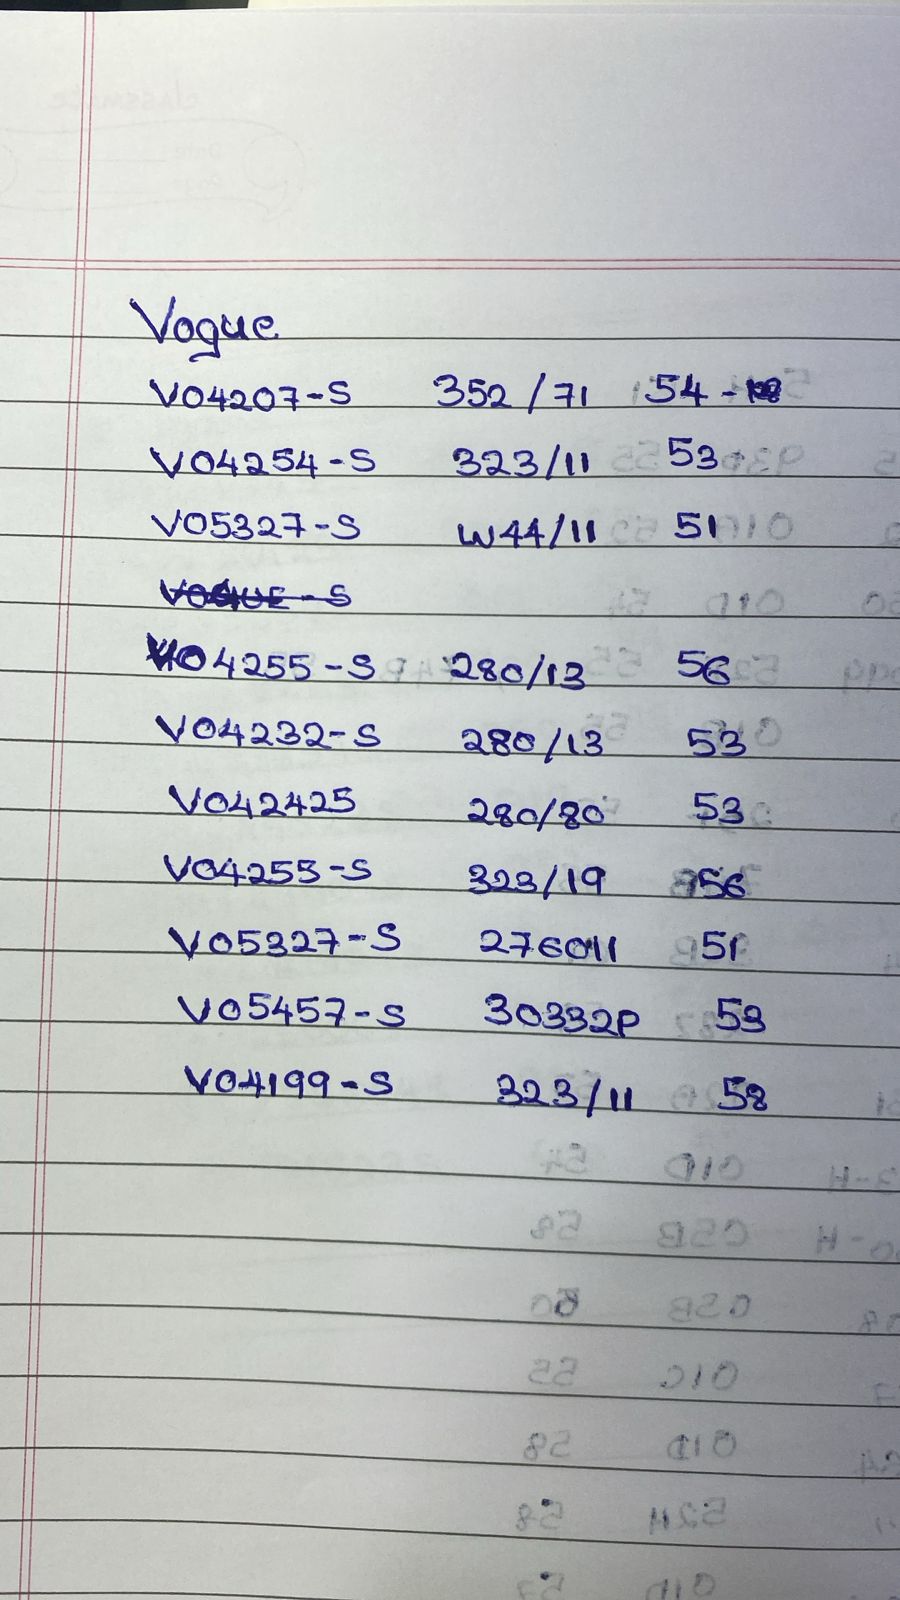 Vogue
VO4207-S 352/71 54-
VO4254-S 323/11 53
VO5327-S W44/11 51
VOGUE-S
VO4255-S 280/13 56
VO4232-S 280/13 53
VO42425 280/80 53
VO4255-S 323/19 56
VO5327-S 276011 51
VO5457-S 30332P 53
VO4199-S 323/11 58